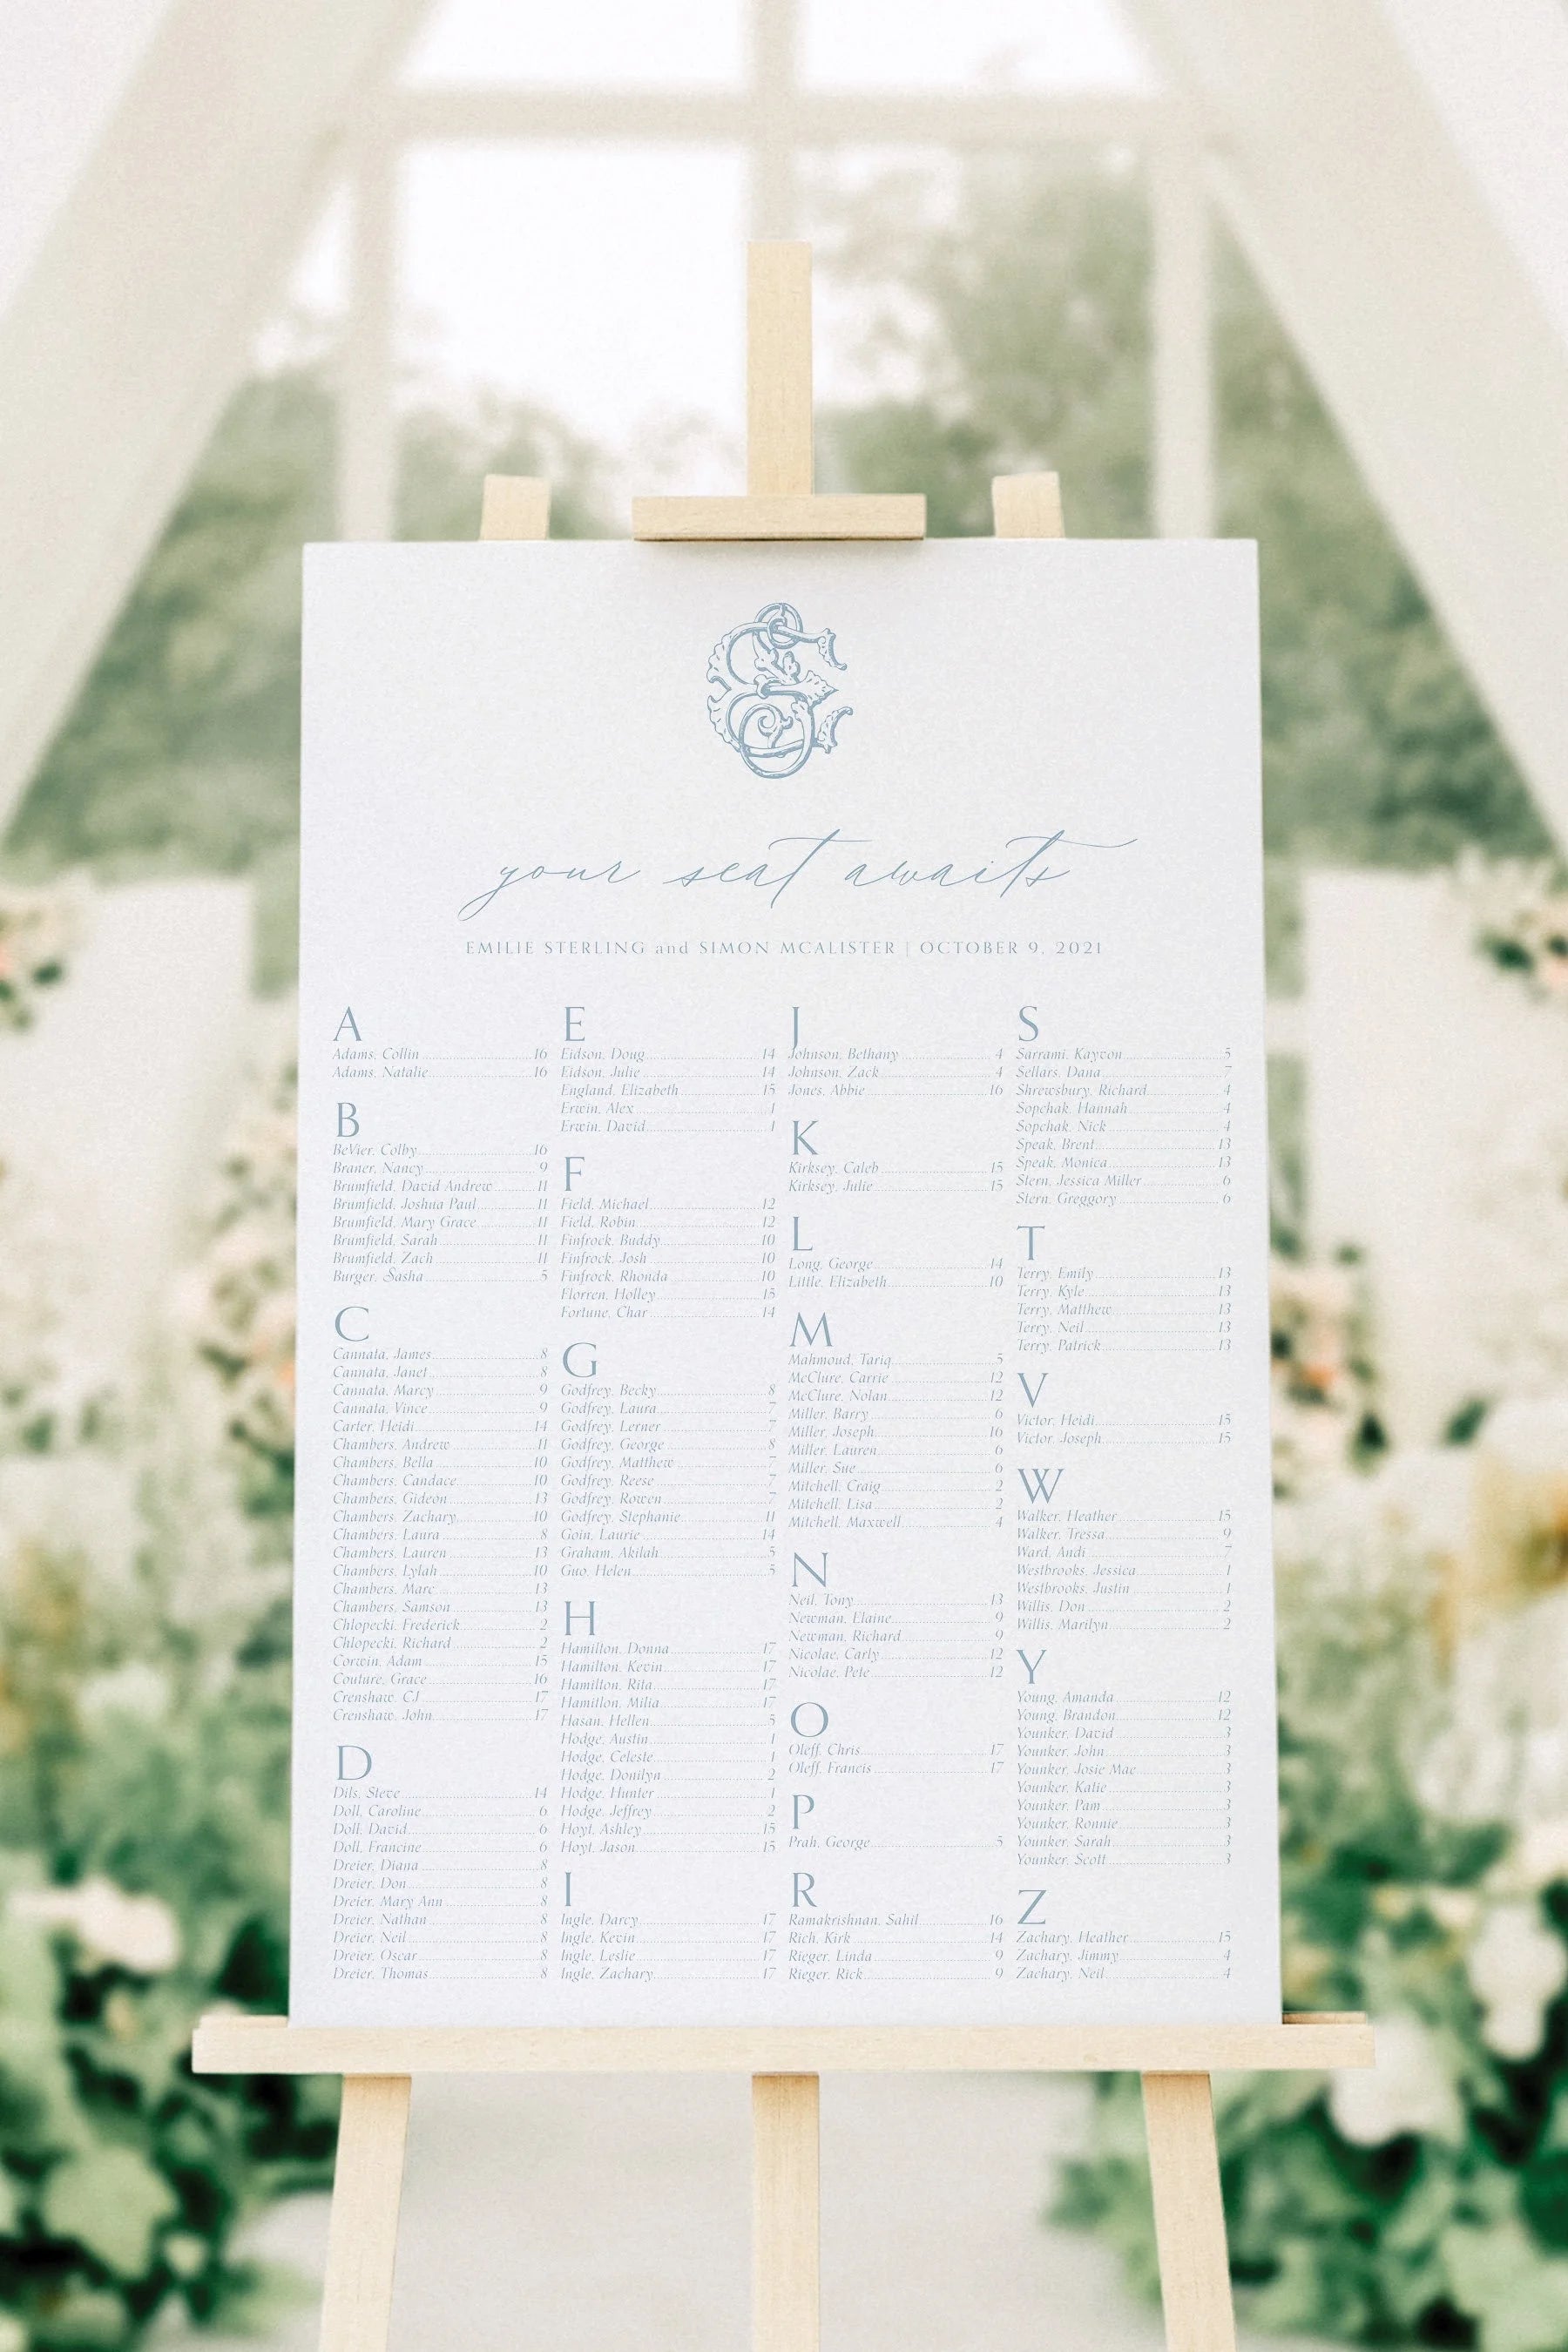 your seat awaits
EMILIE STERLING and SIMON MCALISTER | OCTOBER 9, 2021
A
Adams, Collin 16
Adams, Natalie 16
B
BeVier, Colby 16
Braner, Nancy 9
Brumfield, David Andrew 11
Brumfield, Joshua Paul 11
Brumfield, Mary Grace 11
Brumfield, Sarah 11
Brumfield, Zach 11
Burger, Sasha 5
C
Cannata, James 8
Cannata, Janet 8
Cannata, Marcy 9
Cannata, Vince 9
Carter, Heidi 14
Chambers, Andrew 11
Chambers, Bella 10
Chambers, Candace 10
Chambers, Gideon 13
Chambers, Zachary 10
Chambers, Laura 8
Chambers, Lauren 13
Chambers, Lylah 10
Chambers, Marc 13
Chambers, Samson 13
Chlopecki, Frederick 2
Chlopecki, Richard 2
Corwin, Adam 15
Couture, Grace 16
Crenshaw, CJ 17
Crenshaw, John 17
D
Dils, Steve 14
Doll, Caroline 6
Doll, David 6
Doll, Francine 6
Dreier, Diana 8
Dreier, Don 8
Dreier, Mary Ann 8
Dreier, Nathan 8
Dreier, Neil 8
Dreier, Oscar 8
Dreier, Thomas 8
E
Eidson, Doug 14
Eidson, Julie 14
England, Elizabeth 15
Erwin, Alex 1
Erwin, David 1
F
Field, Michael 12
Field, Robin 12
Finfrock, Buddy 10
Finfrock, Josh 10
Finfrock, Rhonda 10
Florren, Holley 15
Fortune, Char 14
G
Godfrey, Becky 8
Godfrey, Laura 7
Godfrey, Lerner 7
Godfrey, George 8
Godfrey, Matthew 7
Godfrey, Reese 7
Godfrey, Rowen 7
Godfrey, Stephanie 11
Goin, Laurie 14
Graham, Akilah 5
Guo, Helen 5
H
Hamilton, Donna 17
Hamilton, Kevin 17
Hamilton, Rita 17
Hamitlon, Milia 17
Hasan, Hellen 5
Hodge, Austin 1
Hodge, Celeste 1
Hodge, Donilyn 2
Hodge, Hunter 1
Hodge, Jeffrey 2
Hoyt, Ashley 15
Hoyt, Jason 15
I
Ingle, Darcy 17
Ingle, Kevin 17
Ingle, Leslie 17
Ingle, Zachary 17
J
Johnson, Bethany 4
Johnson, Zack 4
Jones, Abbie 16
K
Kirksey, Caleb 15
Kirksey, Julie 15
L
Long, George 14
Little, Elizabeth 10
M
Mahmoud, Tariq 5
McClure, Carrie 12
McClure, Nolan 12
Miller, Barry 6
Miller, Joseph 16
Miller, Lauren 6
Miller, Sue 6
Mitchell, Craig 2
Mitchell, Lisa 2
Mitchell, Maxwell 4
N
Neil, Tony 13
Newman, Elaine 9
Newman, Richard 9
Nicolae, Carly 12
Nicolae, Pete 12
O
Oleff, Chris 17
Oleff, Francis 17
P
Prah, George 5
R
Ramakrishnan, Sahil 16
Rich, Kirk 14
Rieger, Linda 9
Rieger, Rick 9
S
Sarrami, Kayvon 5
Sellars, Dana 7
Shrewsbury, Richard 4
Sopchak, Hannah 4
Sopchak, Nick 4
Speak, Brent 13
Speak, Monica 13
Stern, Jessica Miller 6
Stern, Greggory 6
T
Terry, Emily 13
Terry, Kyle 13
Terry, Matthew 13
Terry, Neil 13
Terry, Patrick 13
V
Victor, Heidi 15
Victor, Joseph 15
W
Walker, Heather 15
Walker, Tressa 9
Ward, Andi 7
Westbrooks, Jessica 1
Westbrooks, Justin 1
Willis, Don 2
Willis, Marilyn 2
Y
Young, Amanda 12
Young, Brandon 12
Younker, David 3
Younker, John 3
Younker, Josie Mae 3
Younker, Katie 3
Younker, Pam 3
Younker, Ronnie 3
Younker, Sarah 3
Younker, Scott 3
Z
Zachary, Heather 15
Zachary, Jimmy 4
Zachary, Neil 4